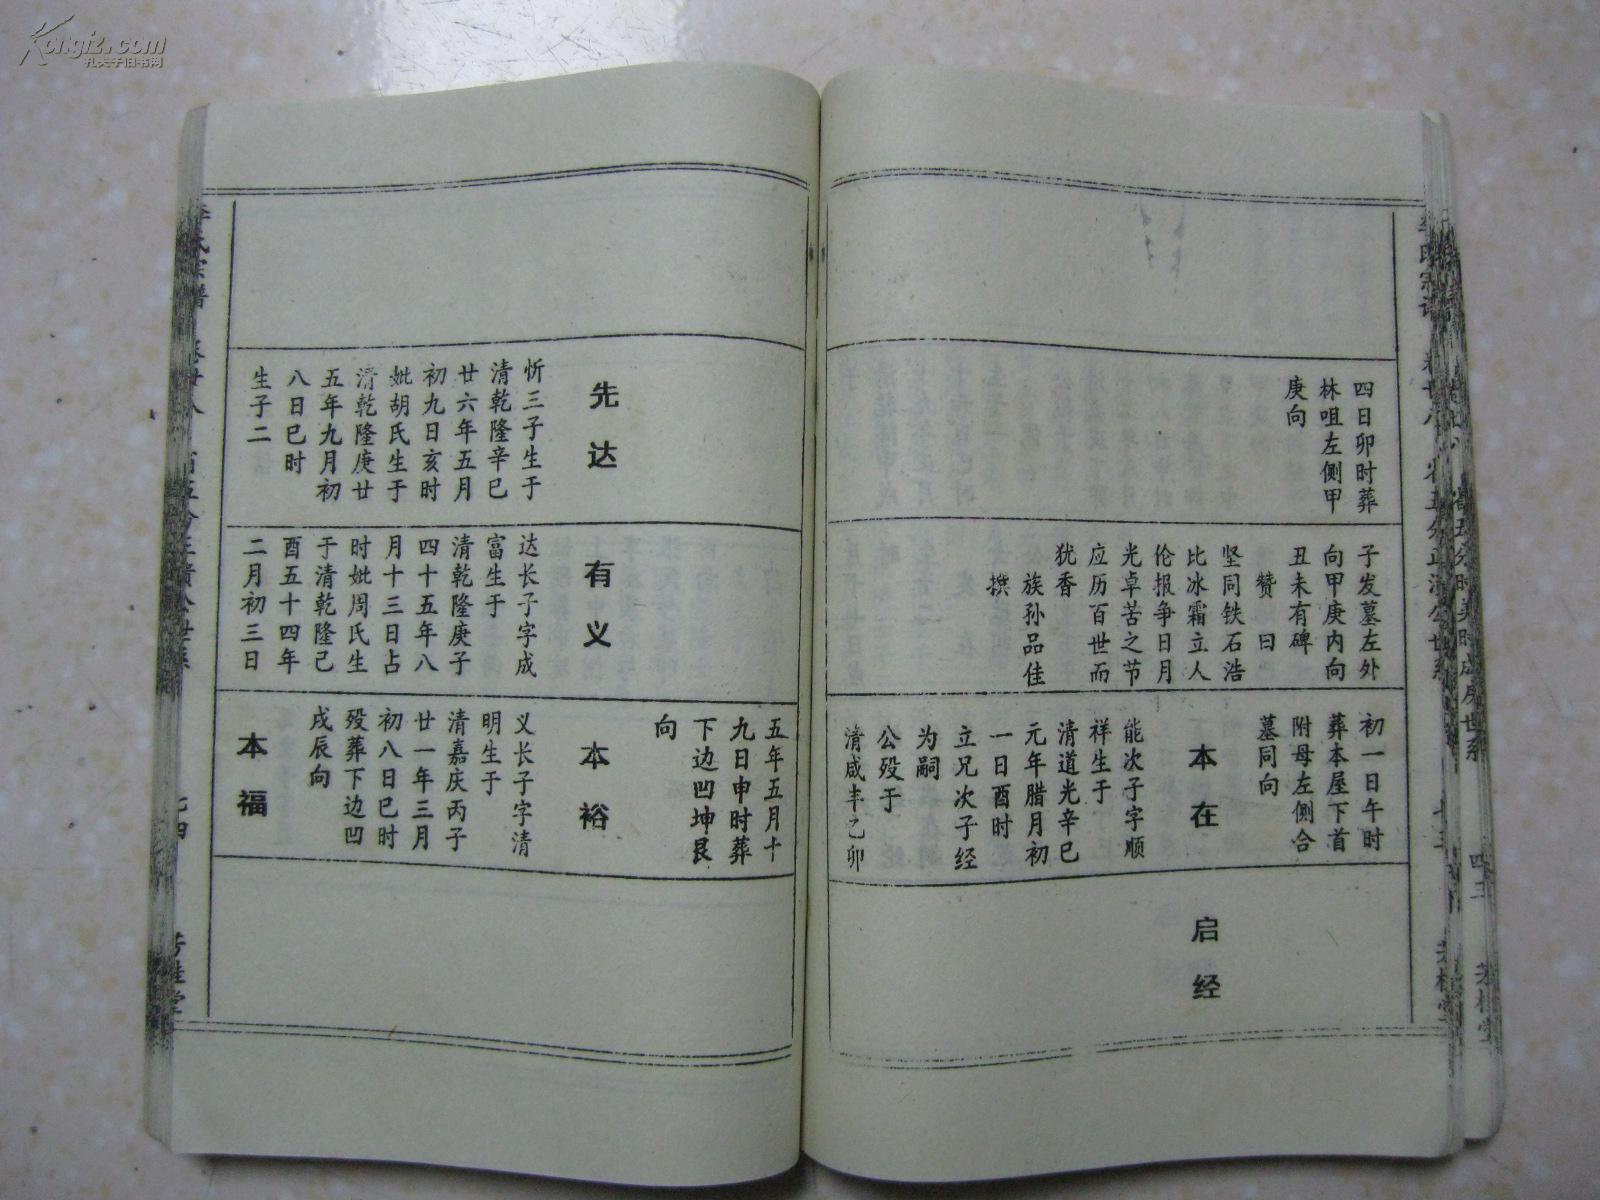 Kongfz.com
孔夫子旧书网
四日卯时葬
林咀左侧甲
庚向
子发墓左外
向甲庚内向
丑未有碑
赞曰
坚同铁石浩
比冰霜立人
伦报争日月
光卓苦之节
应历百世而
犹香
族孙品佳
撰
初一日午时
葬本屋下首
附母左侧合
墓同向
本在
能次子字顺
祥生于
清道光辛巳
元年腊月初
一日酉时
立兄次子经
为嗣
公殁于
清咸丰乙卯
启经
先达
忻三子生于
清乾隆辛巳
廿六年五月
初九日亥时
妣胡氏生于
清乾隆庚廿
五年九月初
八日巳时
生子二
有义
达长子字成
富生于
清乾隆庚子
四十五年八
月十三日占
时妣周氏生
于清乾隆己
酉五十四年
二月初三日
五年五月十
九日申时葬
下边凹坤艮
向
本裕
义长子字清
明生于
清嘉庆丙子
廿一年三月
初八日巳时
殁葬下边凹
戌辰向
本福